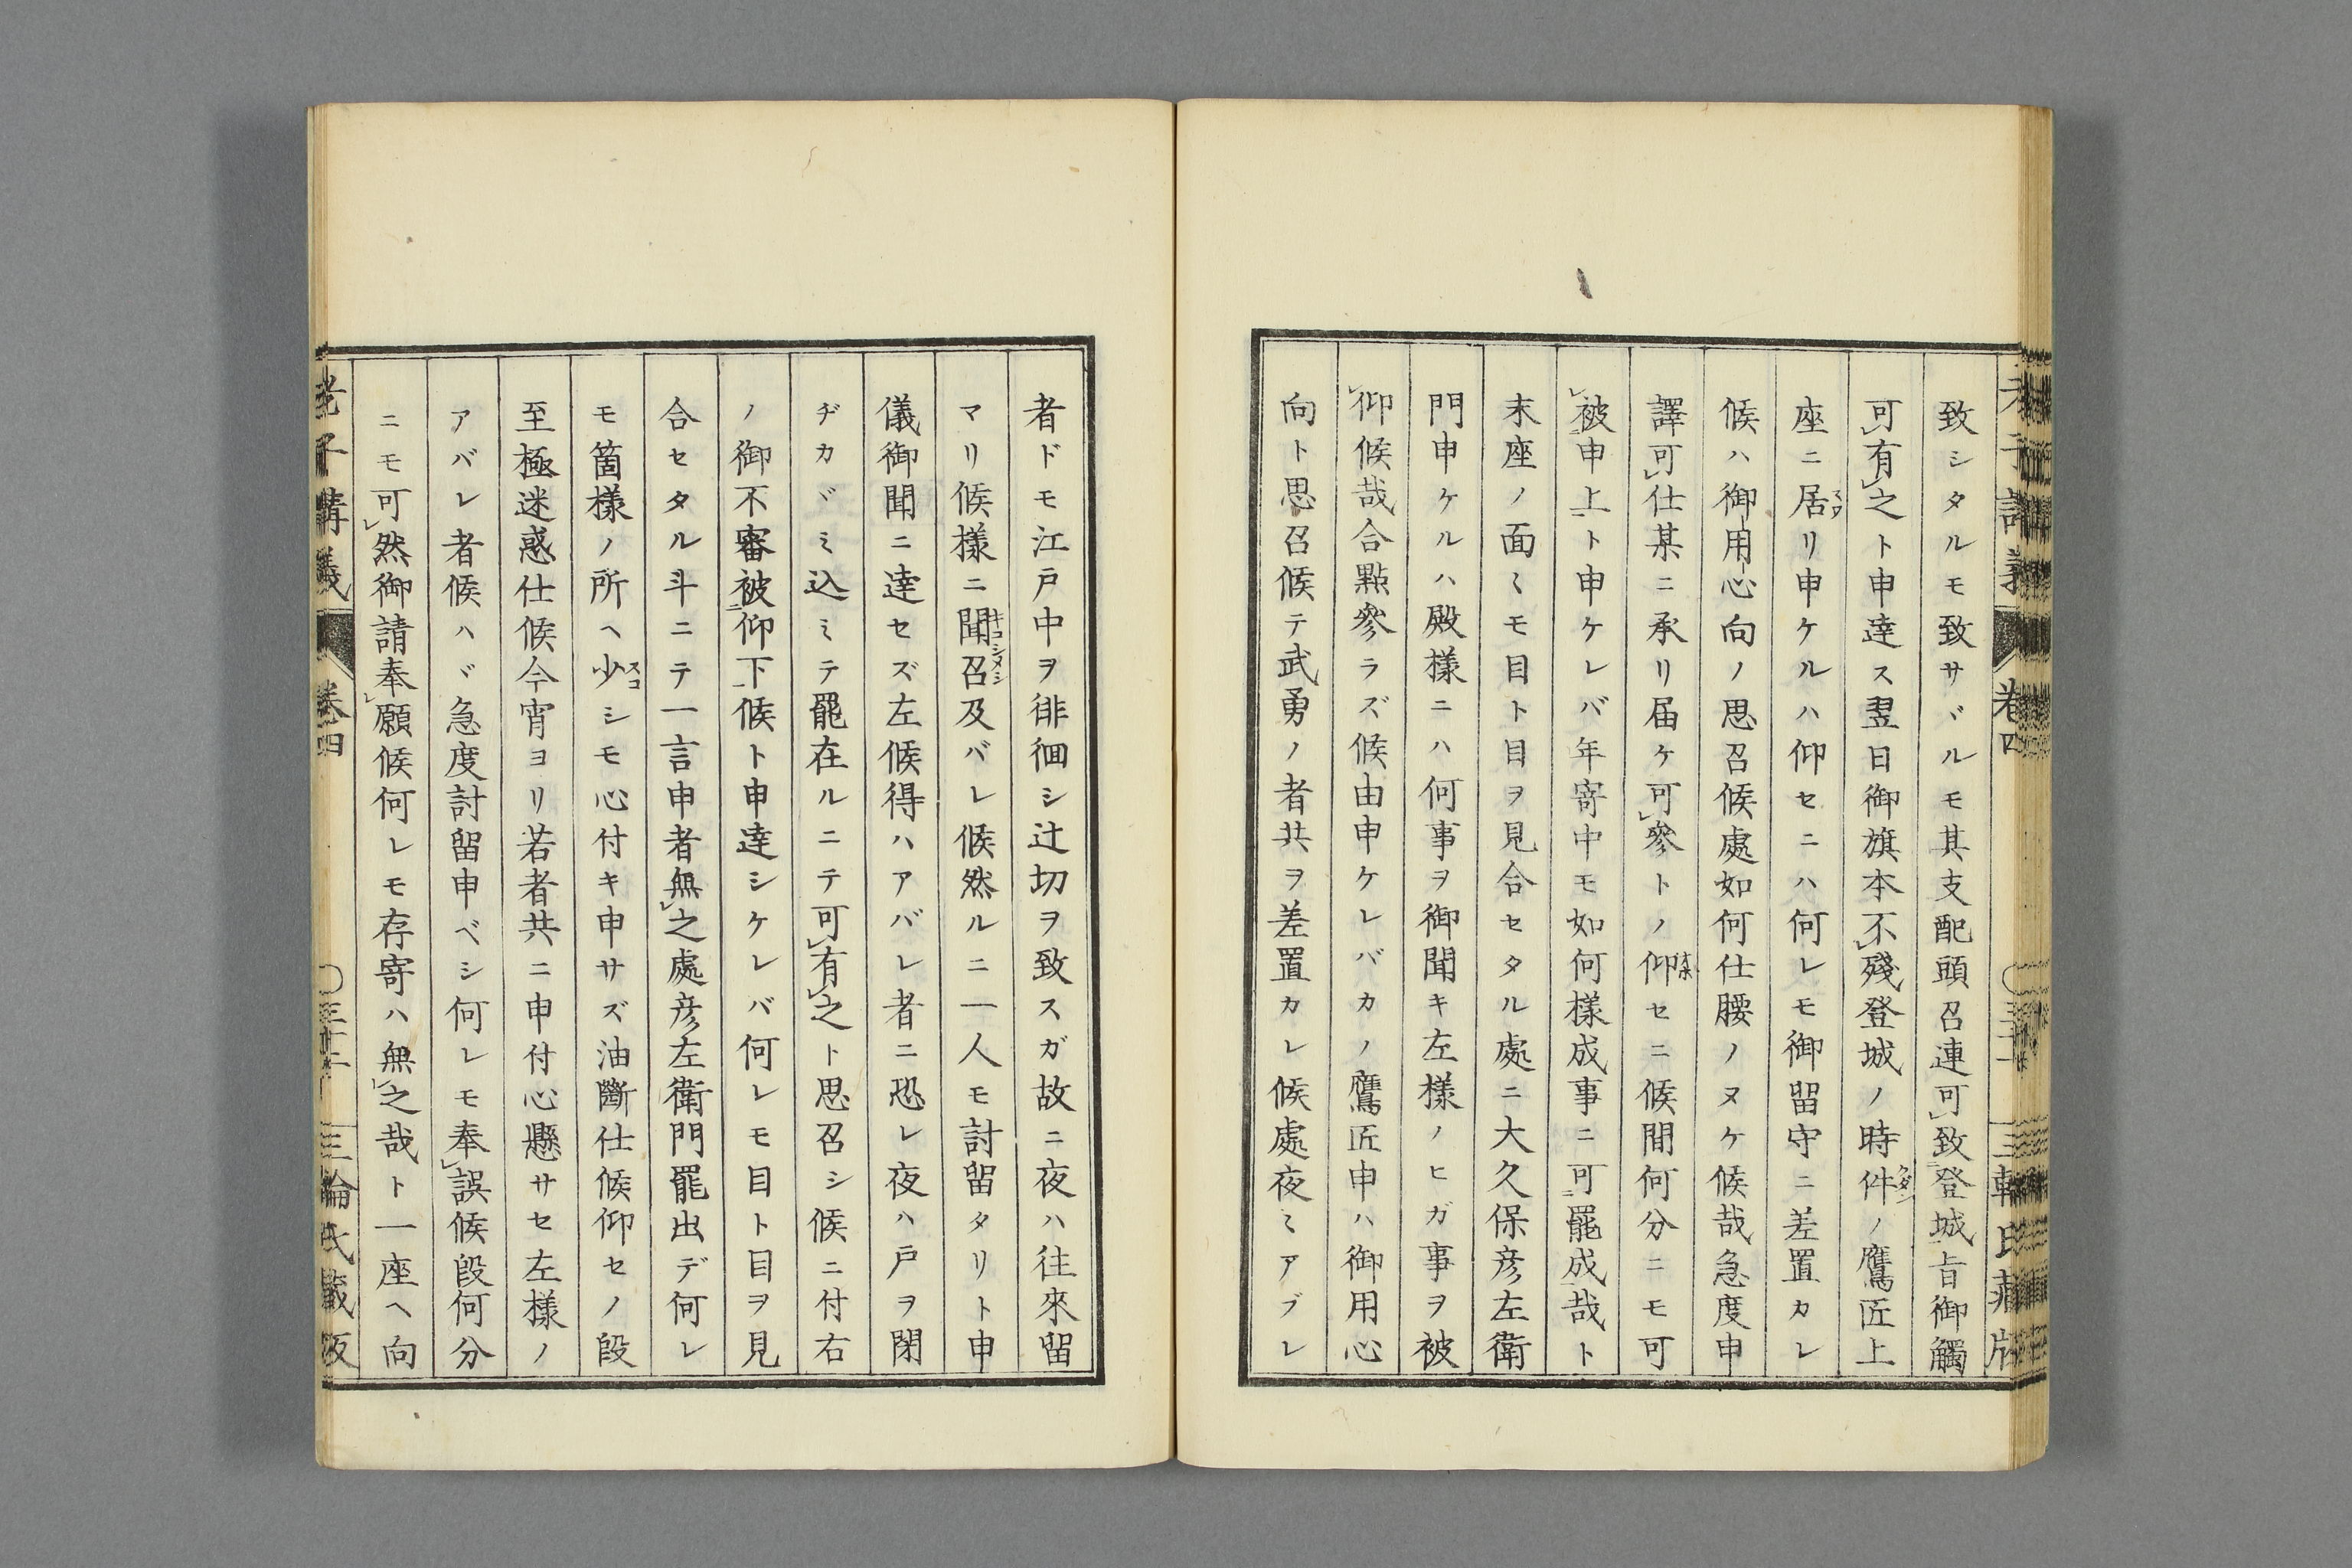 致シタルモ致サヾルモ其支配頭召連可レ致二登城一旨御觸
可レ有レ之ト申達ス翌日御旗本不レ殘登城ノ時件ノ鷹匠上
座ニ居リ申ケルハ仰セニハ何レモ御留守ニ差置カレ
候ハ御用心向ノ思召候處如何仕腰ノヌケ候哉急度申
譯可レ仕某ニ承リ届ケ可レ參トノ仰セニ候間何分ニモ可
レ被二申上一ト申ケレバ年寄中モ如何樣成事ニ可二罷成一哉ト
末座ノ面〻モ目ト目ヲ見合セタル處ニ大久保彦左衛
門申ケルハ殿樣ニハ何事ヲ御聞キ左樣ノヒガ事ヲ被
レ仰候哉合點參ラズ候由申ケレバカノ鷹匠申ハ御用心
向ト思召候テ武勇ノ者共ヲ差置カレ候處夜〻アブレ
者ドモ江戸中ヲ徘徊シ辻切ヲ致スガ故ニ夜ハ往來留
マリ候樣ニ聞召及バレ候然ルニ一人モ討留タリト申
儀御聞ニ達セズ左候得ハアバレ者ニ恐レ夜ハ戸ヲ閉
ヂカヾミ込ミテ罷在ルニテ可レ有レ之ト思召シ候ニ付右
ノ御不審被二仰下一候ト申達シケレバ何レモ目ト目ヲ見
合セタル斗ニテ一言申者無レ之處彦左衛門罷出デ何レ
モ箇樣ノ所ヘ少シモ心付キ申サズ油斷仕候仰セノ段
至極迷惑仕候今宵ヨリ若者共ニ申付心懸サセ左樣ノ
アバレ者候ハヾ急度討留申ベシ何レモ奉レ誤候段何分
ニモ可レ然御請奉レ願候何レモ存寄ハ無レ之哉ト一座ヘ向
老子講義 卷四 三輪氏藏版